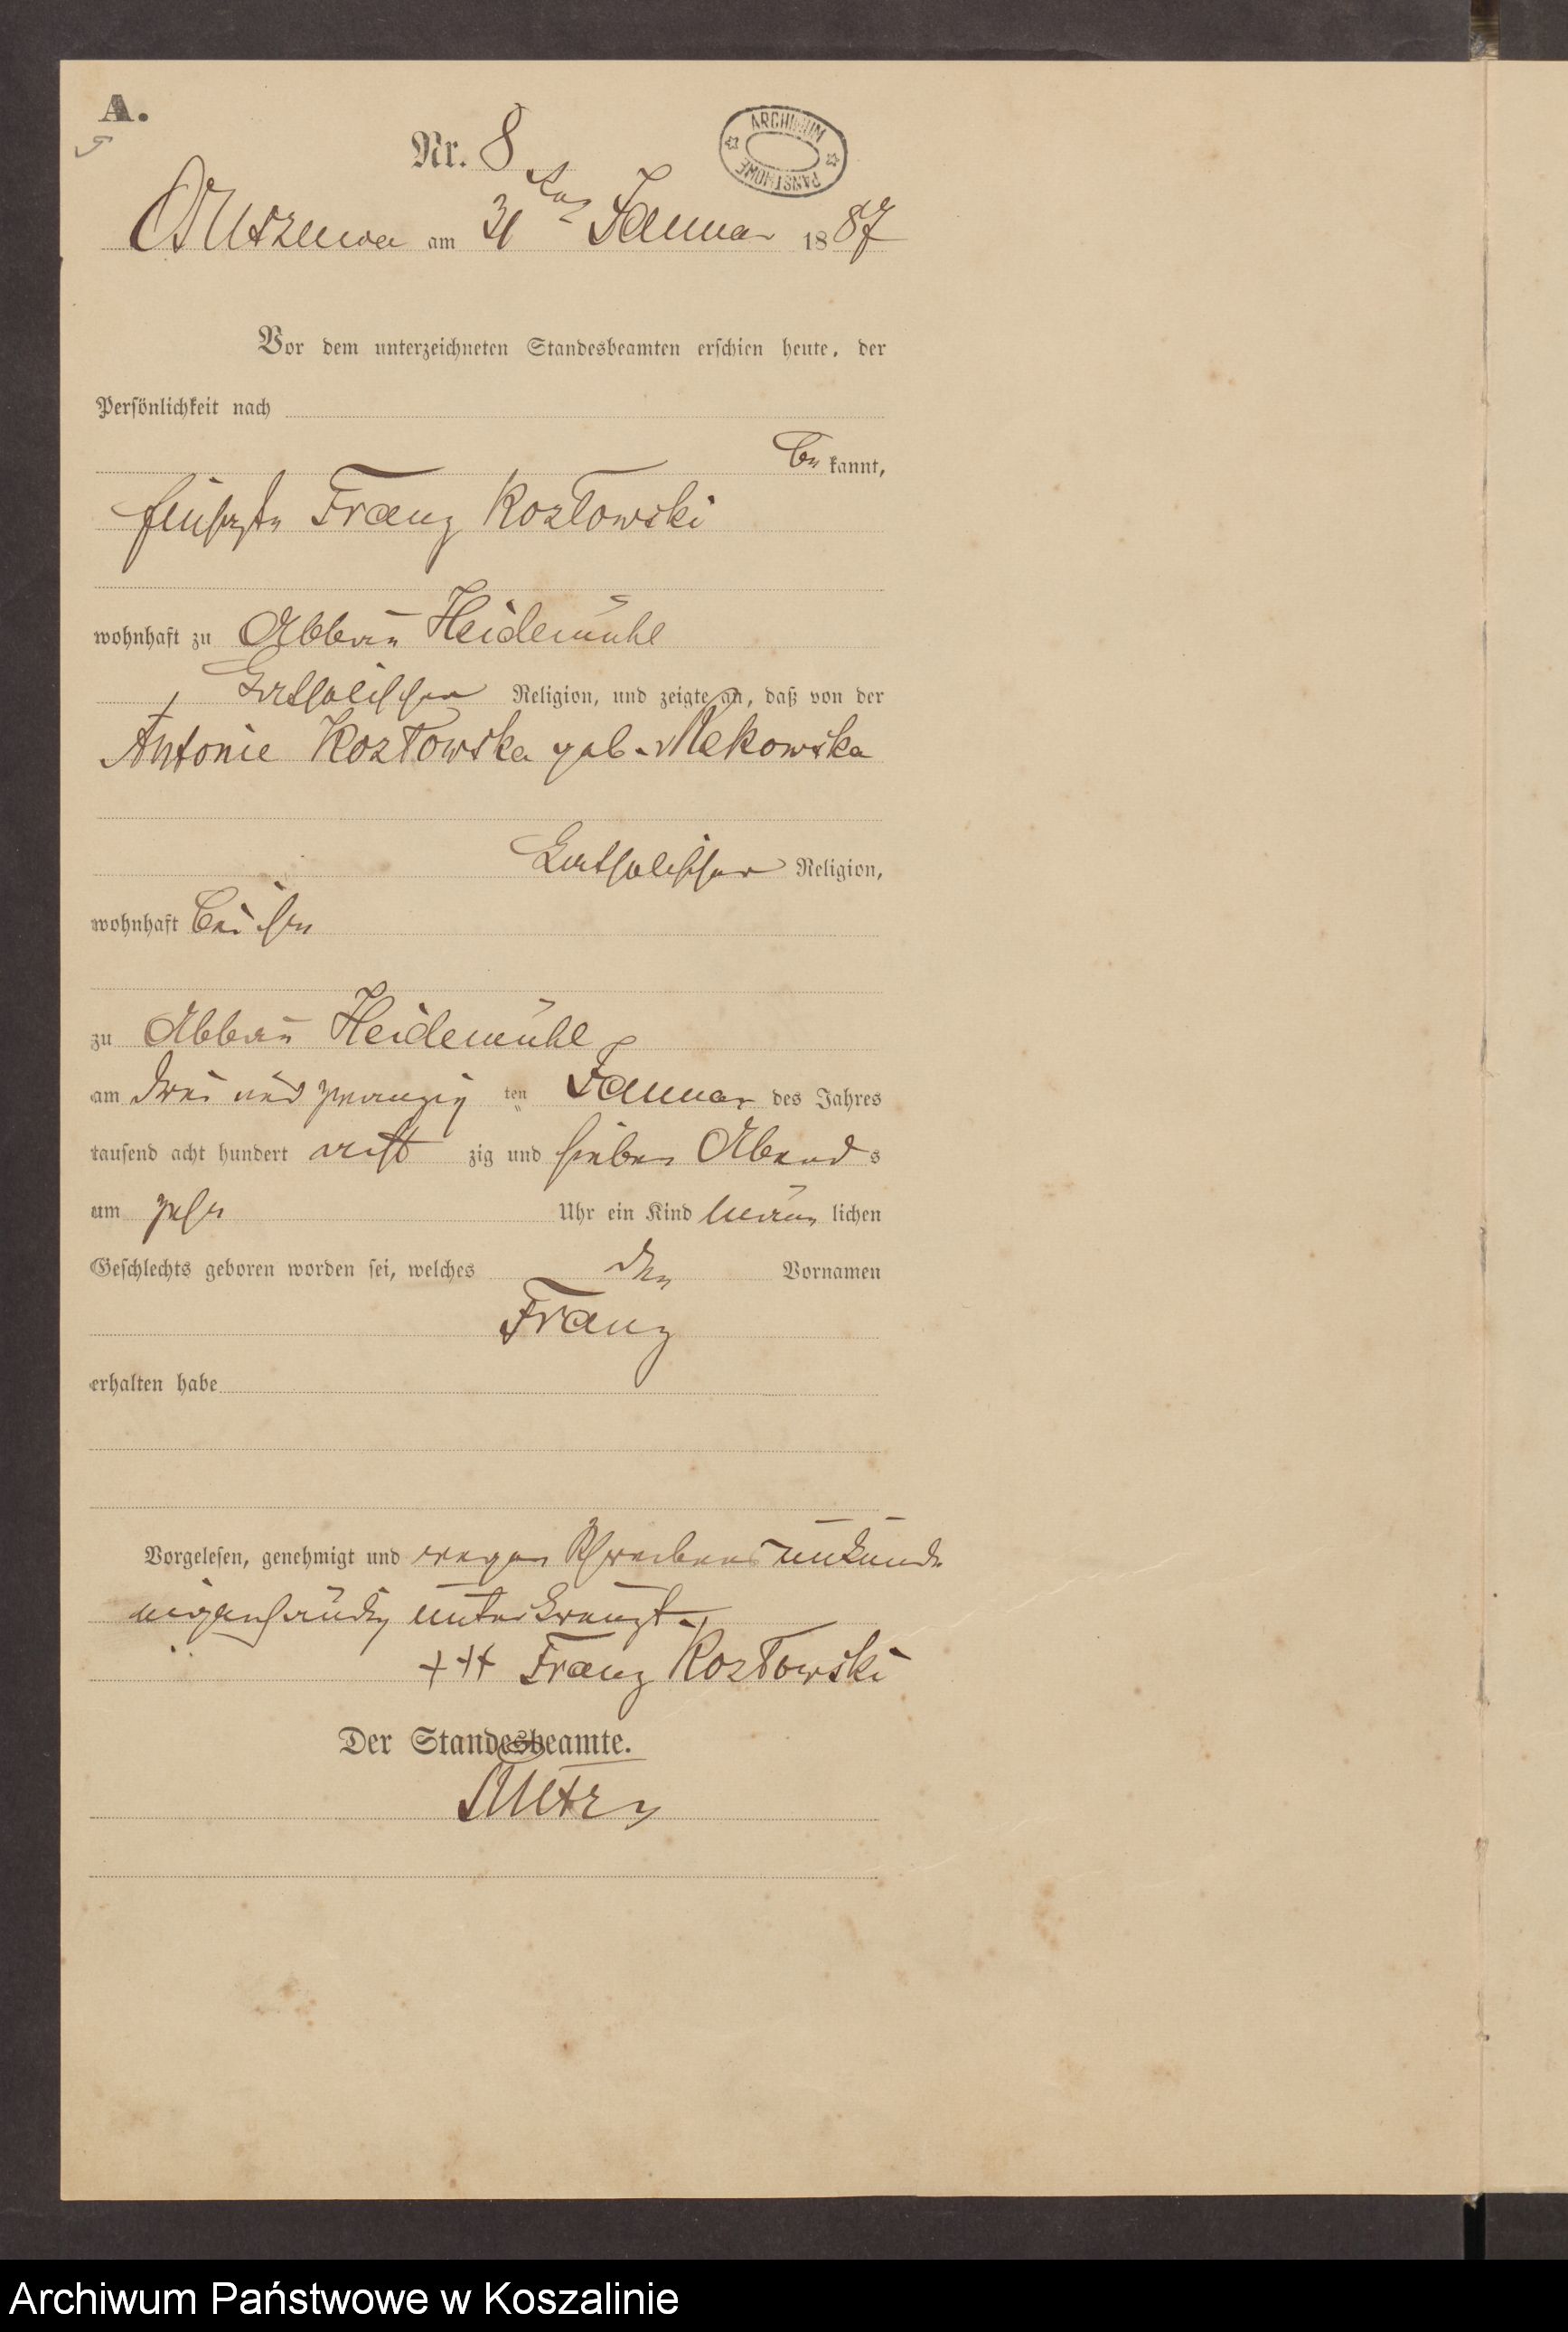 A.
Nr. 8
ARCHIWUM PAŃSTWOWE
am 31ten Januar 1887
Vor dem unterzeichneten Standesbeamten erschien heute, der
Persönlichkeit nach
be kannt,
Franz Kozłowski
wohnhaft zu Abbau Heidemühl
katholischer Religion, und zeigte an, daß von der
Antonie Kozłowska geb. Mekowska
katholischer Religion,
wohnhaft bei ihm
zu Abbau Heidemühl
am drei und zwanzig ten Januar des Jahres
tausend acht hundert acht zig und sieben Abend s
um zehn Uhr ein Kind männ lichen
Geschlechts geboren worden sei, welches den Vornamen
Franz
erhalten habe
Vorgelesen, genehmigt und wegen Schreibensunkunde
eigenhändig unterkreuzt.
+++ Franz Kozłowski
Der Standesbeamte.
Archiwum Państwowe w Koszalinie